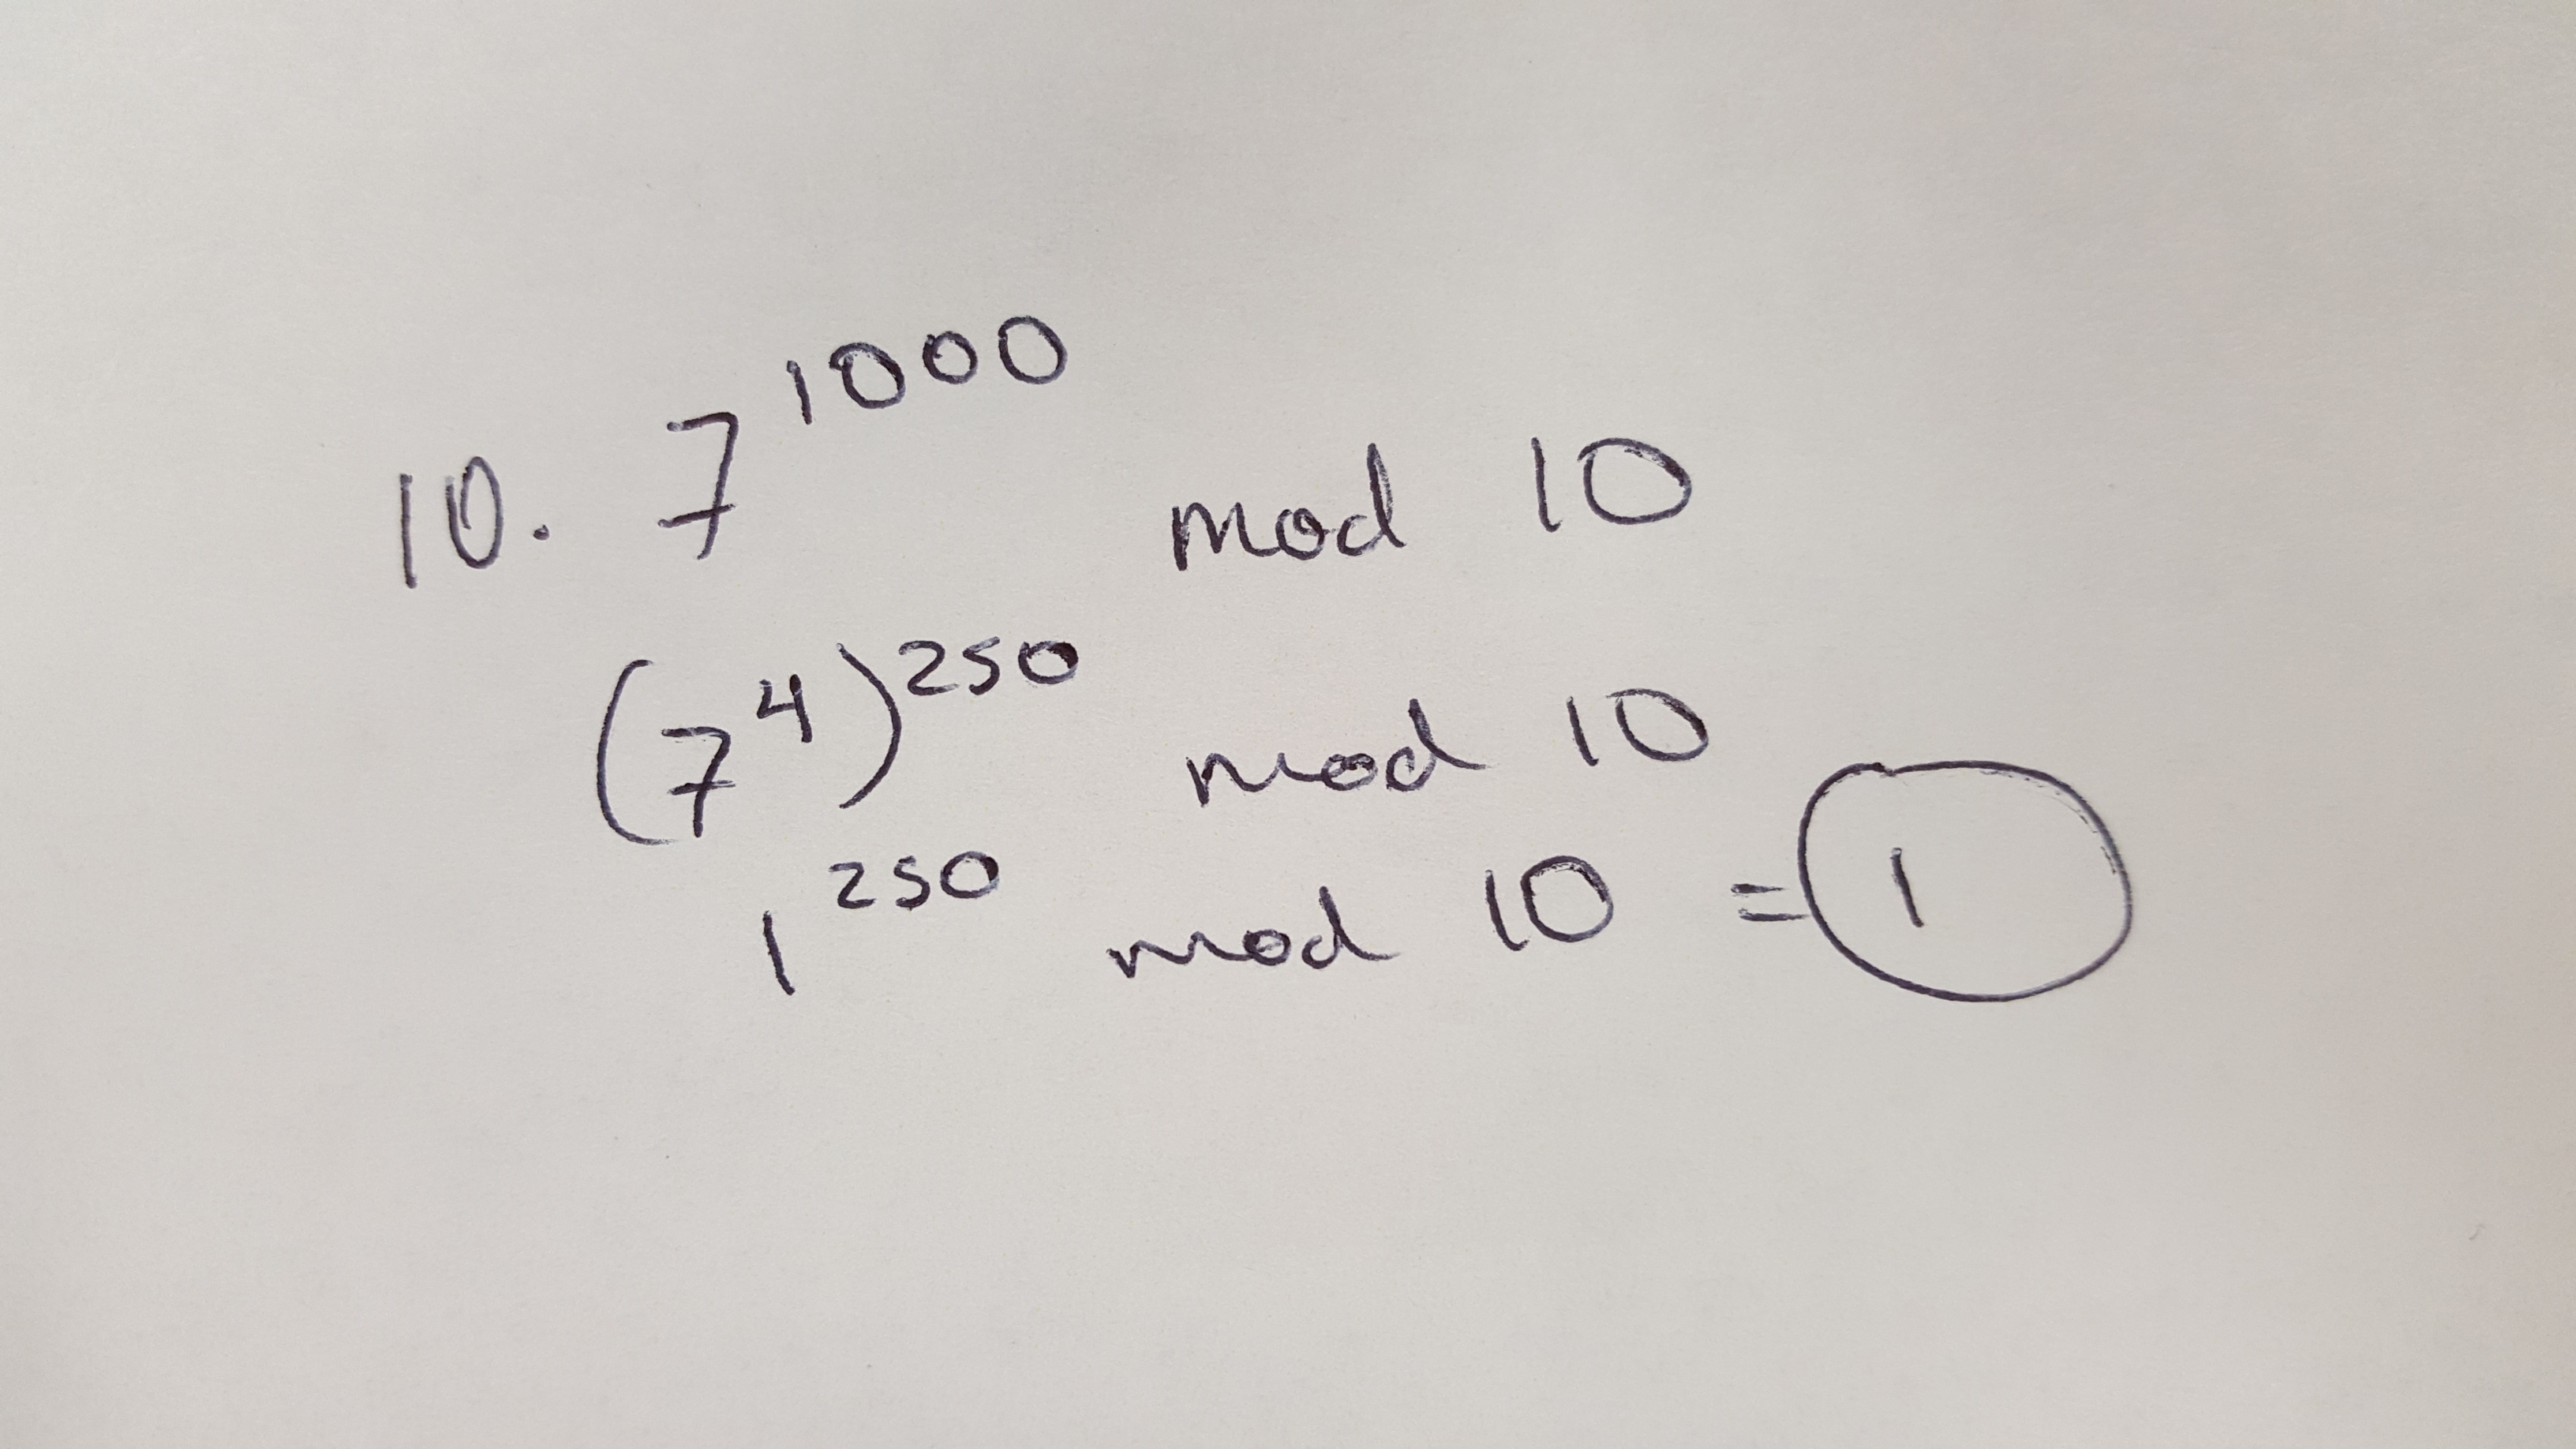 10. 7^1000 mod 10
(7^4)^250 mod 10
1^250 mod 10 = 1